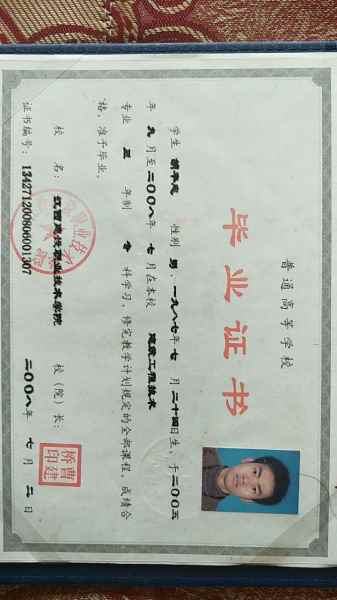 普通高等学校
毕业证书
学生 性别 男,一九八七年七月二十四日生,于二〇〇五
年 九 月至二〇〇八年 七 月在本校 建筑工程技术
专业 三 年制 专 科学习,修完教学计划规定的全部课程,成绩合
格,准予毕业。
校 名:江西建设职业技术学院 校(院)长:
曹建
桥印
证书编号:134271200806001307 二〇〇八年 七 月 二 日